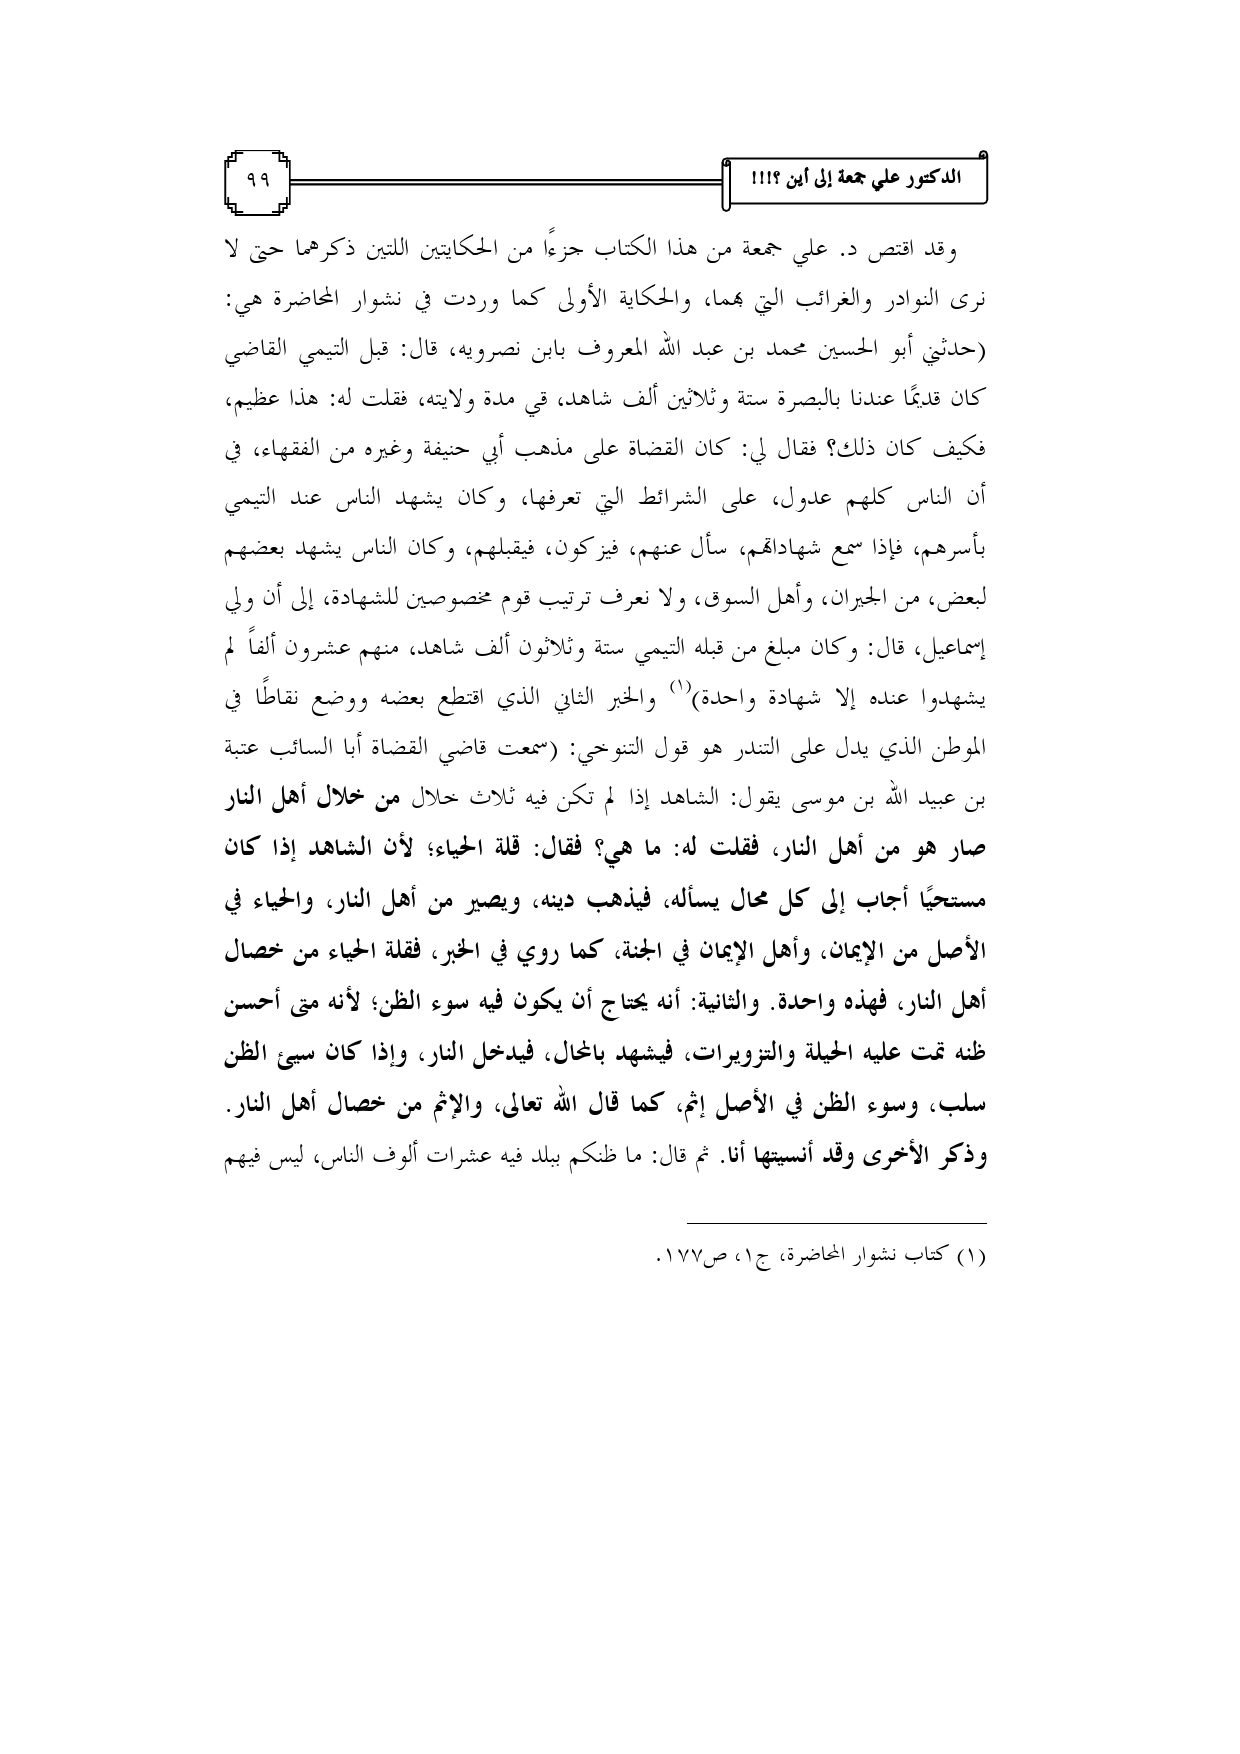 الدكتور علي جمعة إلى أين ؟!!!
٩٩
وقد اقتص د. علي جمعة من هذا الكتاب جزءًا من الحكايتين اللتين ذكرهما حتى لا
نرى النوادر والغرائب التي بهما، والحكاية الأولى كما وردت في نشوار المحاضرة هي:
(حدثني أبو الحسين محمد بن عبد الله المعروف بابن نصرويه، قال: قبل التيمي القاضي
كان قديمًا عندنا بالبصرة ستة وثلاثين ألف شاهد، قي مدة ولايته، فقلت له: هذا عظيم،
فكيف كان ذلك؟ فقال لي: كان القضاة على مذهب أبي حنيفة وغيره من الفقهاء، في
أن الناس كلهم عدول، على الشرائط التي تعرفها، وكان يشهد الناس عند التيمي
بأسرهم، فإذا سمع شهاداتهم، سأل عنهم، فيزكون، فيقبلهم، وكان الناس يشهد بعضهم
لبعض، من الجيران، وأهل السوق، ولا نعرف ترتيب قوم مخصوصين للشهادة، إلى أن ولي
إسماعيل، قال: وكان مبلغ من قبله التيمي ستة وثلاثون ألف شاهد، منهم عشرون ألفاً لم
يشهدوا عنده إلا شهادة واحدة)(١) والخبر الثاني الذي اقتطع بعضه ووضع نقاطًا في
الموطن الذي يدل على التندر هو قول التنوخي: (سمعت قاضي القضاة أبا السائب عتبة
بن عبيد الله بن موسى يقول: الشاهد إذا لم تكن فيه ثلاث خلال من خلال أهل النار
صار هو من أهل النار، فقلت له: ما هي؟ فقال: قلة الحياء؛ لأن الشاهد إذا كان
مستحيًا أجاب إلى كل محال يسأله، فيذهب دينه، ويصير من أهل النار، والحياء في
الأصل من الإيمان، وأهل الإيمان في الجنة، كما روي في الخبر، فقلة الحياء من خصال
أهل النار، فهذه واحدة. والثانية: أنه يحتاج أن يكون فيه سوء الظن؛ لأنه متى أحسن
ظنه تمت عليه الحيلة والتزويرات، فيشهد بالمحال، فيدخل النار، وإذا كان سيئ الظن
سلب، وسوء الظن في الأصل إثم، كما قال الله تعالى، والإثم من خصال أهل النار.
وذكر الأخرى وقد أنسيتها أنا. ثم قال: ما ظنكم ببلد فيه عشرات ألوف الناس، ليس فيهم
(١) كتاب نشوار المحاضرة، ج١، ص١٧٧.